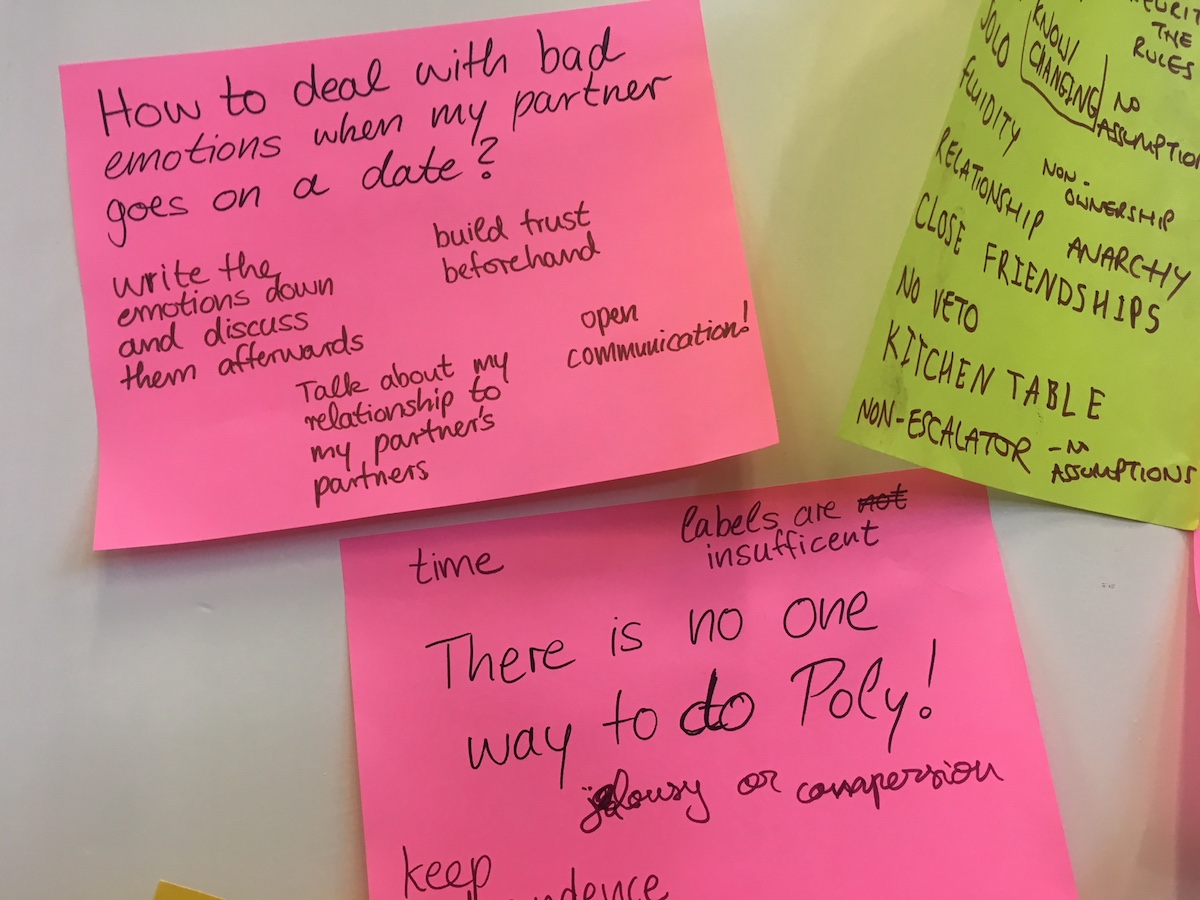 How to deal with bad
emotions when my partner
goes on a date?
write the
emotions down
and discuss
them afterwards
build trust
beforehand
open
communication!
Talk about my
relationship to
my partner's
partners
THE
RULES
SOLO
KNOW/
CHANGING
NO
FLUIDITY
NON-
OWNERSHIP
RELATIONSHIP ANARCHY
CLOSE FRIENDSHIPS
NO VETO
KITCHEN TABLE
NON-ESCALATOR
- NO
ASSUMPTIONS
time
labels are not
insufficent
There is no one
way to do Poly!
jelousy or conapersion
keep